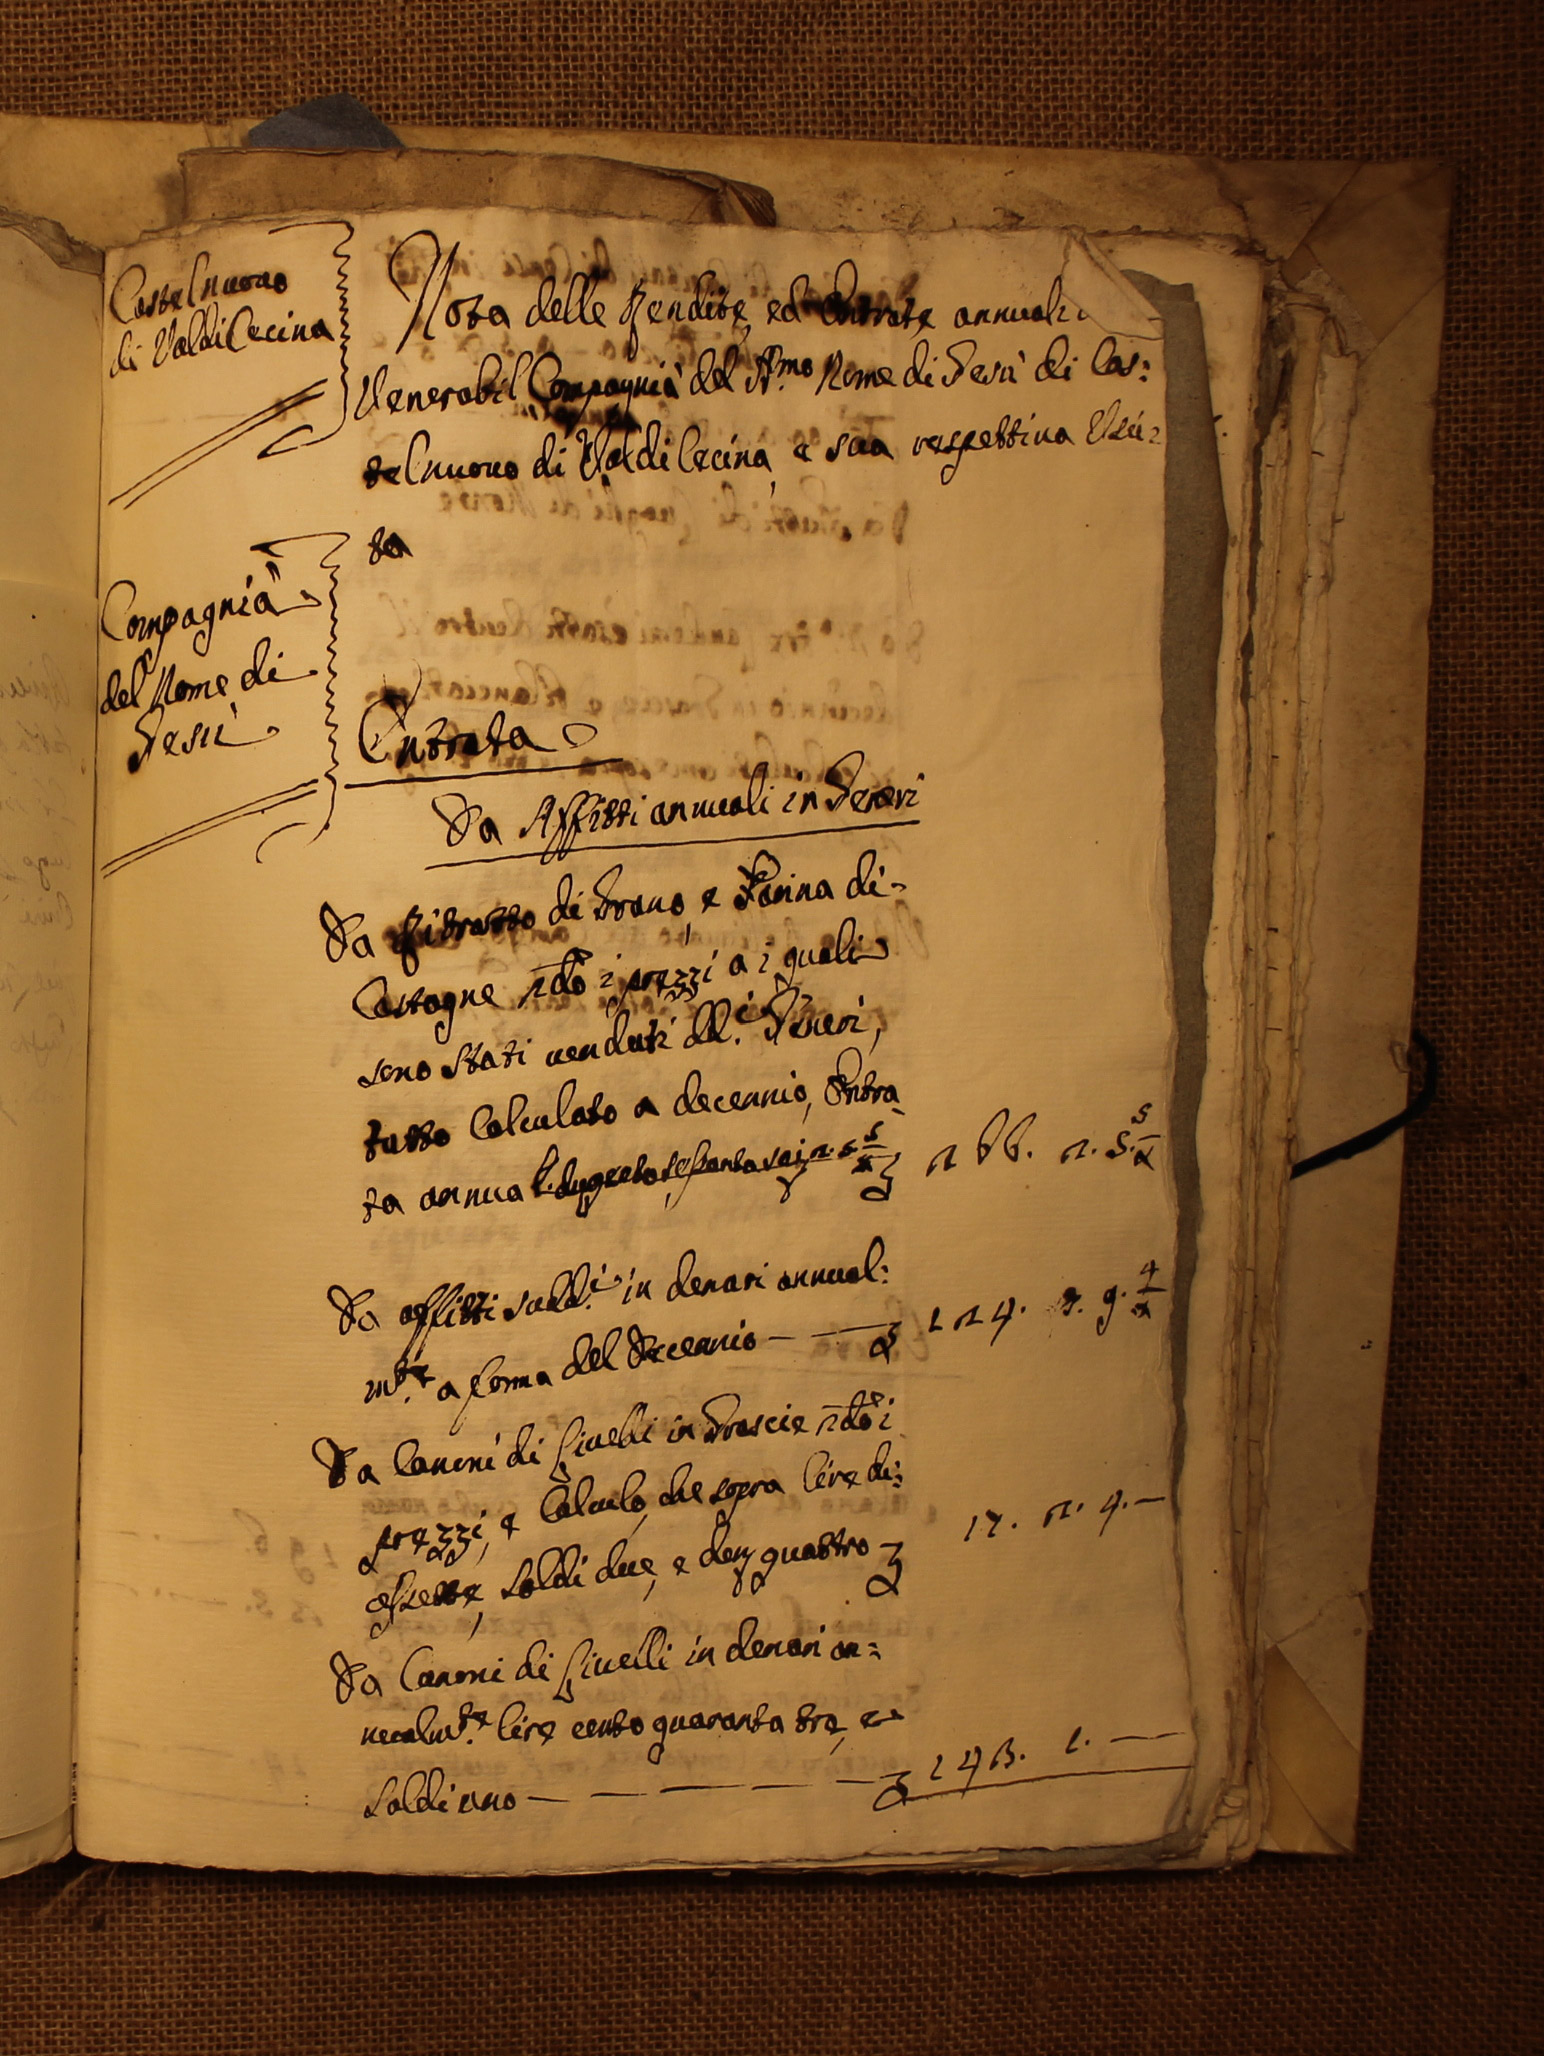 Castelnuovo
di Val di Cecina
Nota delle Rendite, ed Entrate annuali
Venerabil Compagnia del SS.mo Nome di Gesù di Cas:
telnuovo di Val di Cecina, e sua respettiva Usci:
ta
Compagnia
del Nome di
Gesù
Entrata
Da Affitti annuali in Generi
Da Ritratto di Grano, e Farina di-
Castagne 2do i prezzi a i quali
sono stati venduti dd.i Generi,
tutto Calcolato a decennio, Entra
ta annua L. dugentosessantasei 2. 5 5/2 £ 266. 2. 5. 5/2
Da affitti sudd.i in denari annual:
m.te a forma del Decennio — — £ 124. 3. 9. 4/2
Da Canoni di Livelli in Grascie 2do i
prezzi, e Calculo, che sopra lire di:
assette, soldi due, e den quattro £ 17. 2. 4. —
Da Canoni di Livelli in denari an:
nualm.te lire cento quaranta tre, e
soldi uno — — — — — £ 143. 1. —